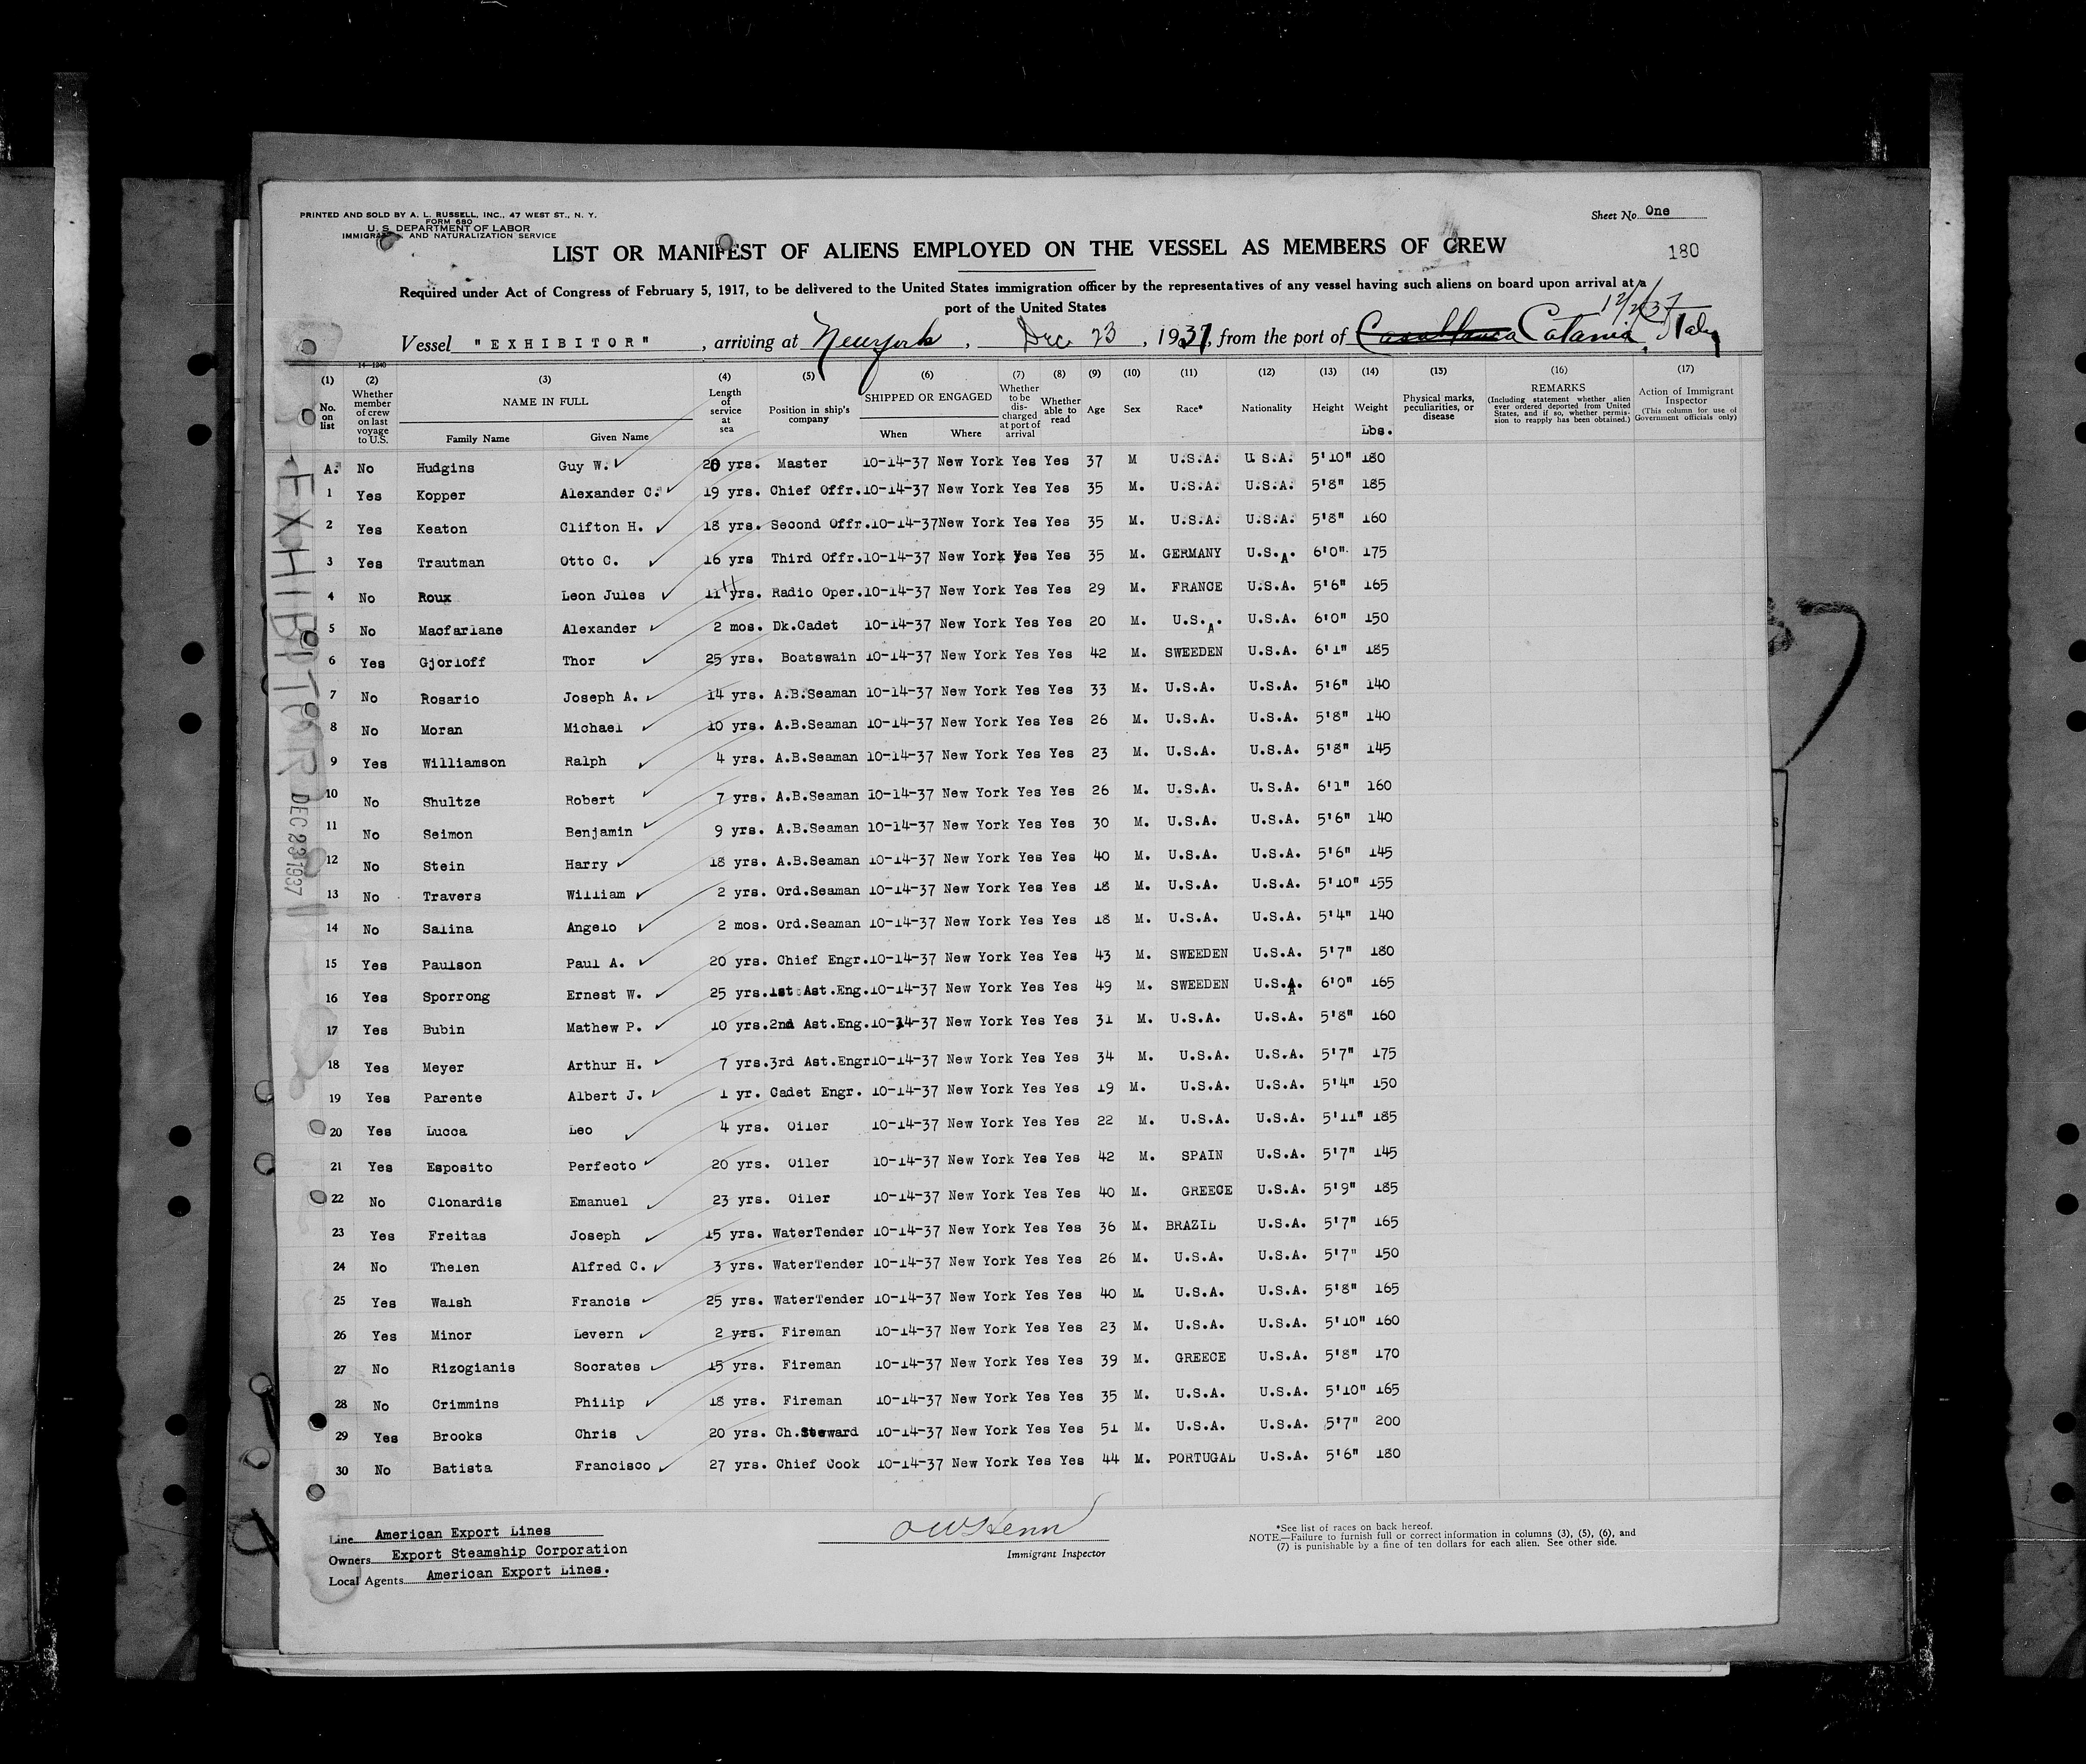 PRINTED AND SOLD BY A. L. RUSSELL, INC., 47 WEST ST., N. Y.
FORM 680
U. S. DEPARTMENT OF LABOR
AND NATURALIZATION SERVICE
Sheet No. One
180
LIST OR MANIFEST OF ALIENS EMPLOYED ON THE VESSEL AS MEMBERS OF CREW
Required under Act of Congress of February 5, 1917, to be delivered to the United States immigration officer by the representatives of any vessel having such aliens on board upon arrival at a
port of the United States
Vessel "EXHIBITOR", arriving at New York, Dec 23, 1937, from the port of Casablanca Catania, Italy
14-1240
(1) (2) (3) (4) (5) (6) (7) (8) (9) (10) (11) (12) (13) (14) (15) (16) (17)
No. on list Whether member of crew on last voyage to U.S. NAME IN FULL Family Name Given Name Length of service at sea Position in ship's company SHIPPED OR ENGAGED When Where Whether to be discharged at port of arrival Whether able to read Age Sex Race* Nationality Height Weight Lbs. Physical marks, peculiarities, or disease REMARKS (Including statement whether alien ever ordered deported from United States, and if so, whether permission to reapply has been obtained.) Action of Immigrant Inspector (This column for use of Government officials only)
A. No Hudgins Guy W. 20 yrs. Master 10-14-37 New York Yes Yes 37 M U.S.A. U.S.A. 5'10" 180
1 Yes Kopper Alexander C. 19 yrs. Chief Offr. 10-14-37 New York Yes Yes 35 M. U.S.A. U.S.A. 5'8" 185
2 Yes Keaton Clifton H. 18 yrs. Second Offr. 10-14-37 New York Yes Yes 35 M. U.S.A. U.S.A. 5'8" 160
3 Yes Trautman Otto C. 16 yrs Third Offr. 10-14-37 New York Yes Yes 35 M. GERMANY U.S.A. 6'0" 175
4 No Roux Leon Jules 11 yrs. Radio Oper. 10-14-37 New York Yes Yes 29 M. FRANCE U.S.A. 5'6" 165
5 No Macfarlane Alexander 2 mos. Dk.Cadet 10-14-37 New York Yes Yes 20 M. U.S.A. U.S.A. 6'0" 150
6 Yes Gjorloff Thor 25 yrs. Boatswain 10-14-37 New York Yes Yes 42 M. SWEEDEN U.S.A. 6'1" 185
7 No Rosario Joseph A. 14 yrs. A.B.Seaman 10-14-37 New York Yes Yes 33 M. U.S.A. U.S.A. 5'6" 140
8 No Moran Michael 10 yrs. A.B.Seaman 10-14-37 New York Yes Yes 26 M. U.S.A. U.S.A. 5'8" 140
9 Yes Williamson Ralph 4 yrs. A.B.Seaman 10-14-37 New York Yes Yes 23 M. U.S.A. U.S.A. 5'8" 145
10 No Shultze Robert 7 yrs. A.B.Seaman 10-14-37 New York Yes Yes 26 M. U.S.A. U.S.A. 6'1" 160
11 No Seimon Benjamin 9 yrs. A.B.Seaman 10-14-37 New York Yes Yes 30 M. U.S.A. U.S.A. 5'6" 140
12 No Stein Harry 18 yrs. A.B.Seaman 10-14-37 New York Yes Yes 40 M. U.S.A. U.S.A. 5'6" 145
13 No Travers William 2 yrs. Ord.Seaman 10-14-37 New York Yes Yes 18 M. U.S.A. U.S.A. 5'10" 155
14 No Salina Angelo 2 mos. Ord.Seaman 10-14-37 New York Yes Yes 18 M. U.S.A. U.S.A. 5'4" 140
15 Yes Paulson Paul A. 20 yrs. Chief Engr. 10-14-37 New York Yes Yes 43 M. SWEEDEN U.S.A. 5'7" 180
16 Yes Sporrong Ernest W. 25 yrs. 1st Ast.Eng. 10-14-37 New York Yes Yes 49 M. SWEEDEN U.S.A. 6'0" 165
17 Yes Bubin Mathew P. 10 yrs. 2nd Ast.Eng. 10-14-37 New York Yes Yes 31 M. U.S.A. U.S.A. 5'8" 160
18 Yes Meyer Arthur H. 7 yrs. 3rd Ast.Engr 10-14-37 New York Yes Yes 34 M. U.S.A. U.S.A. 5'7" 175
19 Yes Parente Albert J. 1 yr. Cadet Engr. 10-14-37 New York Yes Yes 19 M. U.S.A. U.S.A. 5'4" 150
20 Yes Lucca Leo 4 yrs. Oiler 10-14-37 New York Yes Yes 22 M. U.S.A. U.S.A. 5'11" 185
21 Yes Esposito Perfecto 20 yrs. Oiler 10-14-37 New York Yes Yes 42 M. SPAIN U.S.A. 5'7" 145
22 No Clonardis Emanuel 23 yrs. Oiler 10-14-37 New York Yes Yes 40 M. GREECE U.S.A. 5'9" 185
23 Yes Freitas Joseph 15 yrs. WaterTender 10-14-37 New York Yes Yes 36 M. BRAZIL U.S.A. 5'7" 165
24 No Thelen Alfred C. 3 yrs. WaterTender 10-14-37 New York Yes Yes 26 M. U.S.A. U.S.A. 5'7" 150
25 Yes Walsh Francis 25 yrs. WaterTender 10-14-37 New York Yes Yes 40 M. U.S.A. U.S.A. 5'8" 165
26 Yes Minor Levern 2 yrs. Fireman 10-14-37 New York Yes Yes 23 M. U.S.A. U.S.A. 5'10" 160
27 No Rizogianis Socrates 15 yrs. Fireman 10-14-37 New York Yes Yes 39 M. GREECE U.S.A. 5'8" 170
28 No Crimmins Philip 18 yrs. Fireman 10-14-37 New York Yes Yes 35 M. U.S.A. U.S.A. 5'10" 165
29 Yes Brooks Chris 20 yrs. Ch.Steward 10-14-37 New York Yes Yes 51 M. U.S.A. U.S.A. 5'7" 200
30 No Batista Francisco 27 yrs. Chief Cook 10-14-37 New York Yes Yes 44 M. PORTUGAL U.S.A. 5'6" 180
EXHIBITOR
DEC 23 1937
Line American Export Lines
Owners Export Steamship Corporation
Local Agents American Export Lines.
Immigrant Inspector
*See list of races on back hereof.
NOTE.—Failure to furnish full or correct information in columns (3), (5), (6), and
(7) is punishable by a fine of ten dollars for each alien. See other side.